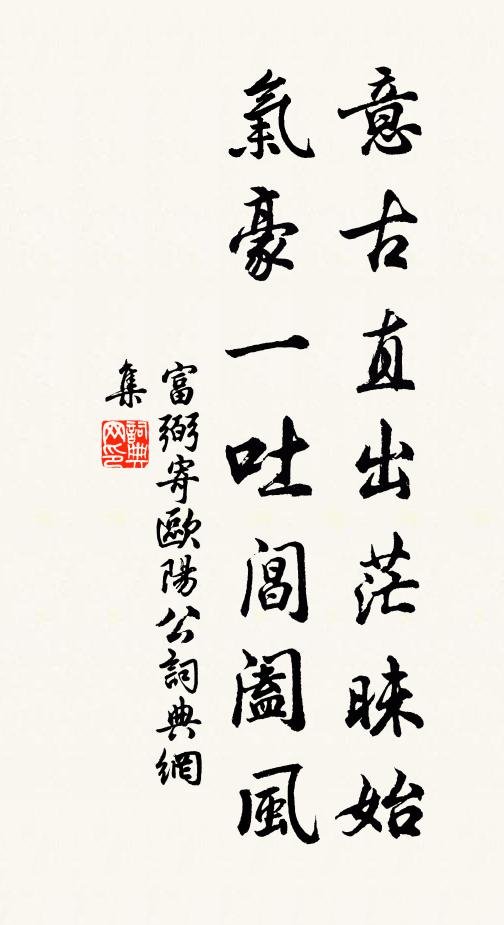 意古直出茫昧始
氣豪一吐閶闔風
富弼寄歐陽公詞典網
集
詞典
网印